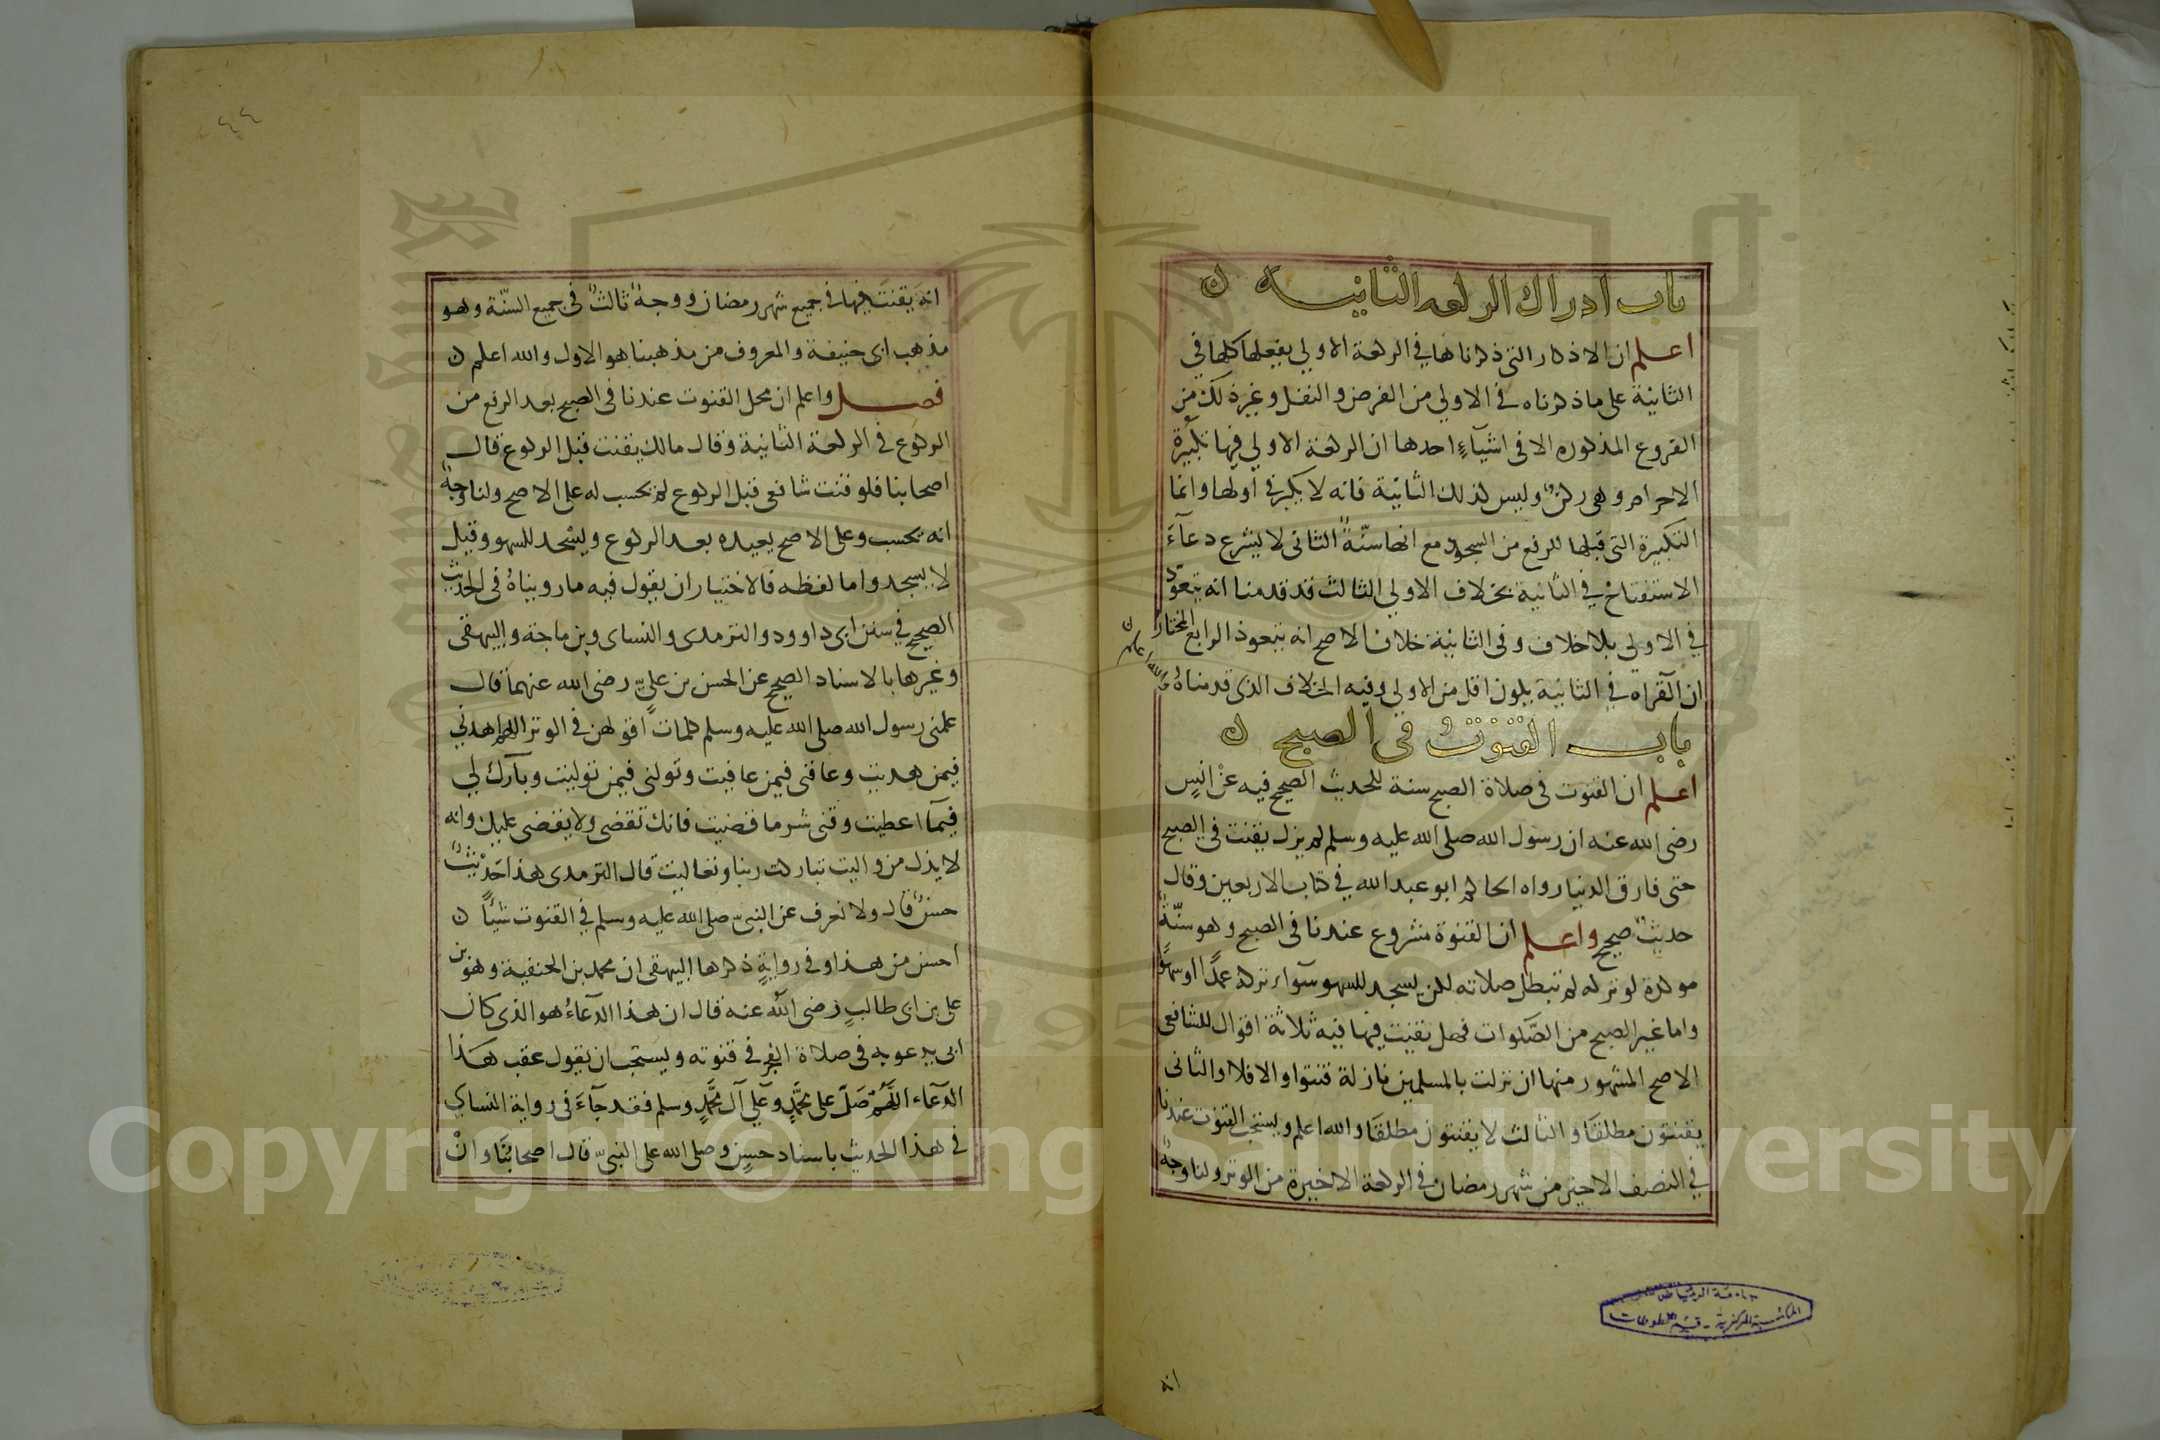 باب ادراك الركعه الثانيه ن
اعلم ان الاذكار التي ذكرناها في الركعة الاولي يفعلها كلها في
الثانية على ما ذكرناه في الاولي من الفرض والنفل وغير ذلك من
الفروع المذكوره الا في اشيآءٍ احدها ان الركعة الاولي فيها تكبيرة
الاحرام وهي ركن وليس كذلك الثانية فانه لا يكبر في اولها وانما
التكبيرة التي قبلها للرفع من السجود مع انها سنّة الثاني لا يشرع دعآءَ
الاستفتاح في الثانية بخلاف الاولي الثالث قد قدمنا انه يتعوّذ
في الاولي بلا خلاف وفي الثانية خلاف الاصح انه يتعوذ الرابع المختار
ان القراة في الثانية يكون اقل من الاولي وفيه الخلاف الذي قدمناه
والله اعلم ن
باب القنوتُ في الصبح ن
اعلم ان القنوت في صلاة الصبح سنة للحديث الصحيح فيه عنْ انسٍ
رضي الله عنه ان رسول الله صلى الله عليه وسلم لم يزل يقنت في الصبح
حتى فارق الدنيا رواه الحاكم ابو عبد الله في كتاب الاربعين وقال
حديث صحيح واعلم ان القنوة مشروع عندنا في الصبح وهو سنّة
موكدة لو تركه لم تبطل صلاته لكن يسجد للسهو سوآء تركه عمدًا او سهوًا
واما غير الصبح من الصَّلوات فهل يقنت فيها فيه ثلاثة اقوال للشافعي
الاصح المشهور منها ان نزلت بالمسلمين نازلة قنتوا والا فلا والثاني
يقنتون مطلقا والثالث لا يقنتون مطلقا والله اعلم ويستحب القنوت عندنا
في النصف الاخير من شهر رمضان في الركعة الاخيرة من الوتر ولنا وجهٌ
انه
جامعة الرياض
المكتبة المركزية - قسم المخطوطات
٤٤
انه يقنت فيها في جميع شهر رمضان ووجهٌ ثالثٌ في جميع السنّة وهو
مذهب ابي حنيفة والمعروف من مذهبنا هو الاول والله اعلم ن
فصل واعلم ان محل القنوت عندنا في الصبح بعد الرفع من
الركوع في الركعة الثانية وقال مالك يقنت قبل الركوع قال
اصحابنا فلو قنت شافعي قبل الركوع لم يحسب له على الاصح ولنا وجهٌ
انه يحسب وعلى الاصح يعيده بعد الركوع ويسْجد للسهو وقيل
لا يسجد واما لفظه فالاختيار ان يقول فيه ما رويناهُ في الحديث
الصحيح في سنن ابي داوود والترمدي والنساي وبن ماجة والبيهقي
وغيرها بالاسناد الصحيح عن الحسن بن عليّ رضي الله عنهما قال
علمني رسول الله صلى الله عليه وسلم كلمات اقولهن في الوتر اللهم اهدني
فيمن هديت وعافني فيمن عافيت وتولني فيمن توليت وبارك لي
فيمآ اعطيت وقني شر ما قضيت فانك تقضي ولا يقضى عليك وانه
لا يذل من واليت تباركت ربنا وتعاليت قال الترمدي هذا حَديْثٌ
حسنٌ قال ولا نعرف عن النبيّ صلى الله عليه وسلم في القنوت شيأً ن
احسن من هذا وفي روايةٍ ذكرها البيهقي ان محمد بن الحنفية وهو بن
علي بن ابي طالبٍ رضي الله عنه قال ان هذا الدعآءُ هو الذي كان
ابي يدعو به في صلاة الفجر في قنوته ويستحب ان يقول عقب هَذا
الدعآء اللَّهُمَّ صَلّ على محَمَّدٍ وعلي آل محَمَّدٍ وسلم فقد جآءَ في رواية النساي
في هذا الحديث باسنادٍ حسنٍ وصلى الله على النبيّ قال اصحابنَا وانْ
Copyright © King Saud University
1957